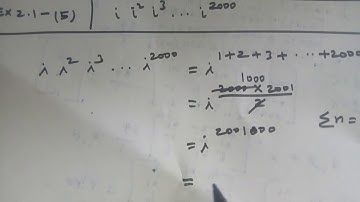 Ex 2.1-(5) i i² i³ ... i²⁰⁰⁰
i i² i³ ... i²⁰⁰⁰ = i^(1+2+3+...+2000)
= i^(1000 2000 × 2001 / 2)
Σn =
= i^2001000
=